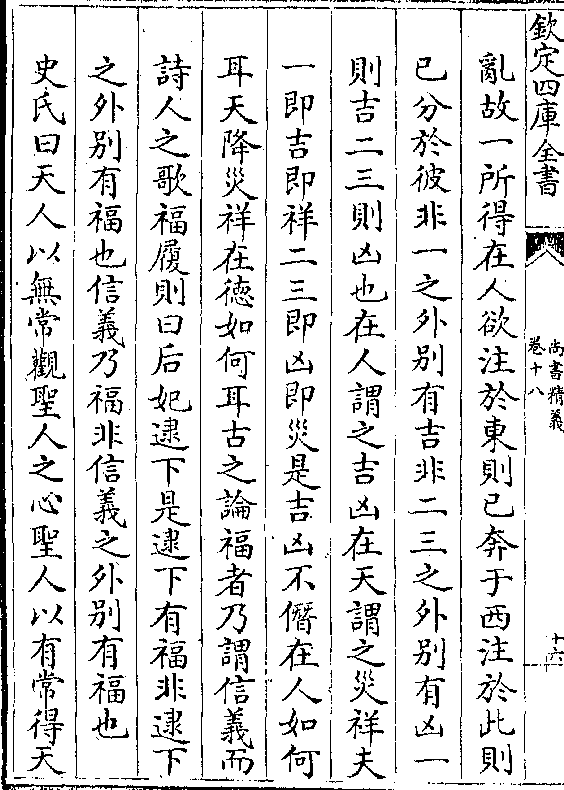 欽定四庫全書
尚書精義
卷十八
十六
亂故一所得在人欲注於東則已奔于西注於此則
已分於彼非一之外别有吉非二三之外别有凶一
則吉二三則凶也在人謂之吉凶在天謂之災祥夫
一即吉即祥二三即凶即災是吉凶不僭在人如何
耳天降災祥在徳如何耳古之論福者乃謂信義而
詩人之歌福履則曰后妃逮下是逮下有福非逮下
之外别有福也信義乃福非信義之外别有福也
史氏曰天人以無常觀聖人之心聖人以有常得天